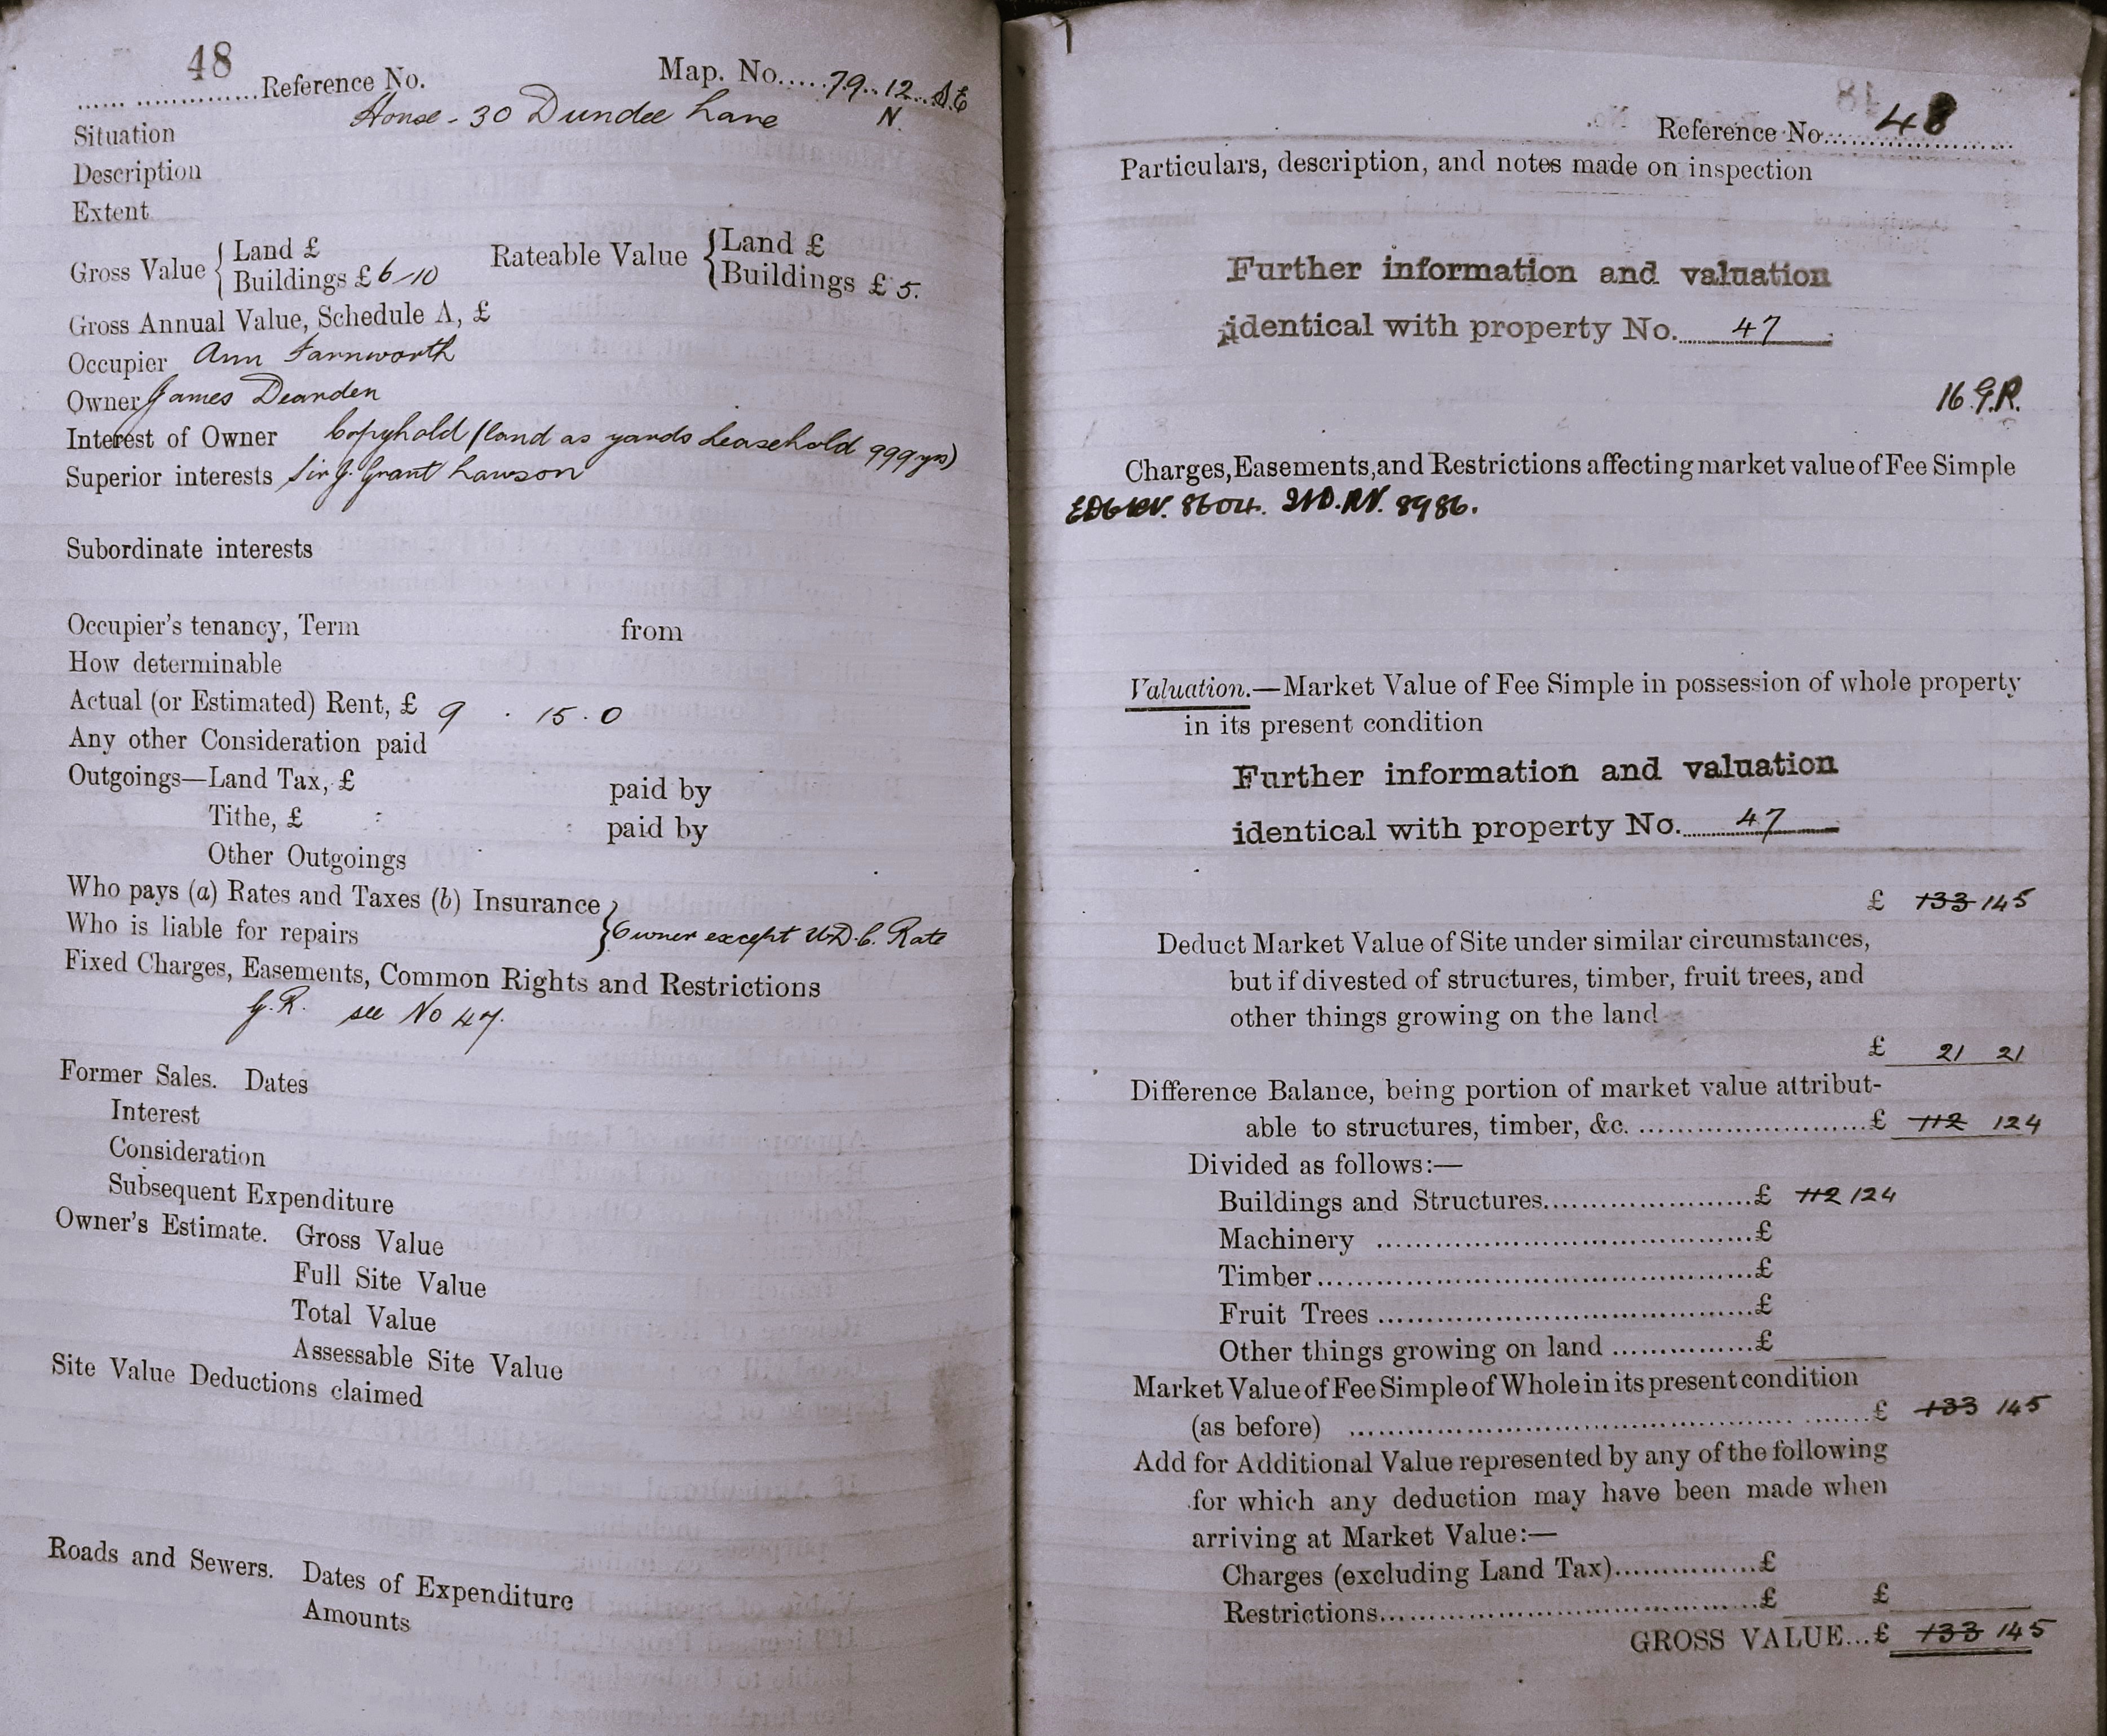 48
Reference No. Map. No. 79. 12. S.E
N.
Situation House - 30 Dundee Lane
Description
Extent
Gross Value { Land £
Buildings £ 6-10
Rateable Value { Land £
Buildings £ 5.
Gross Annual Value, Schedule A, £
Occupier Ann Farnworth
Owner James Dearden
Interest of Owner Copyhold (land as yards leasehold 999 yrs)
Superior interests Sir J. Grant Lawson
Subordinate interests
Occupier's tenancy, Term from
How determinable
Actual (or Estimated) Rent, £ 9 . 15 . 0
Any other Consideration paid
Outgoings—Land Tax, £ paid by
Tithe, £ paid by
Other Outgoings
Who pays (a) Rates and Taxes (b) Insurance
Who is liable for repairs } Owner except U.D.C. Rate
Fixed Charges, Easements, Common Rights and Restrictions
G.R. see No 47.
Former Sales. Dates
Interest
Consideration
Subsequent Expenditure
Owner's Estimate. Gross Value
Full Site Value
Total Value
Assessable Site Value
Site Value Deductions claimed
Roads and Sewers. Dates of Expenditure
Amounts
Reference No. 48
Particulars, description, and notes made on inspection
Further information and valuation
identical with property No. 47
16 G.R.
Charges, Easements, and Restrictions affecting market value of Fee Simple
8604. 8986.
Valuation.—Market Value of Fee Simple in possession of whole property
in its present condition
Further information and valuation
identical with property No. 47
£ 133 145
Deduct Market Value of Site under similar circumstances,
but if divested of structures, timber, fruit trees, and
other things growing on the land
£ 21 21
Difference Balance, being portion of market value attribut-
able to structures, timber, &c. £ 112 124
Divided as follows:—
Buildings and Structures £ 112 124
Machinery £
Timber £
Fruit Trees £
Other things growing on land £
Market Value of Fee Simple of Whole in its present condition
(as before) £ 133 145
Add for Additional Value represented by any of the following
for which any deduction may have been made when
arriving at Market Value:—
Charges (excluding Land Tax) £
Restrictions £ £
GROSS VALUE... £ 133 145